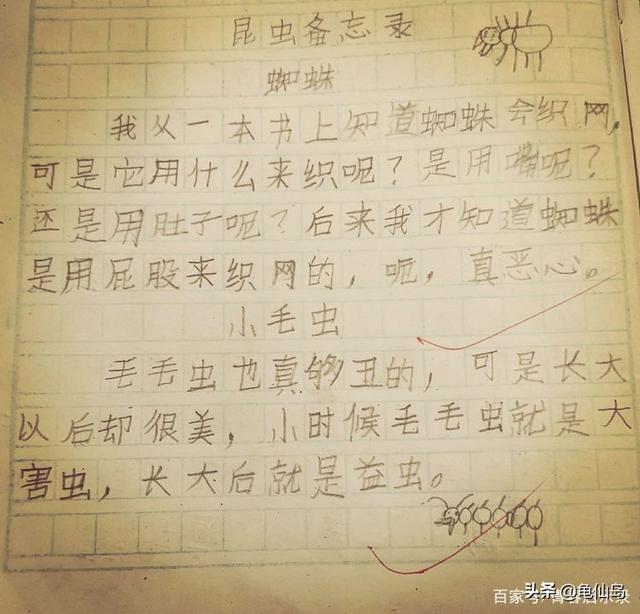 昆虫备忘录
蜘蛛
我从一本书上知道蜘蛛会织网,
可是它用什么来织呢?是用嘴呢?
还是用肚子呢?后来我才知道蜘蛛
是用屁股来织网的,呃,真恶心。
小毛虫
毛毛虫也真够丑的,可是长大
以后却很美,小时候毛毛虫就是大
害虫,长大后就是益虫。
头条 @龟仙岛